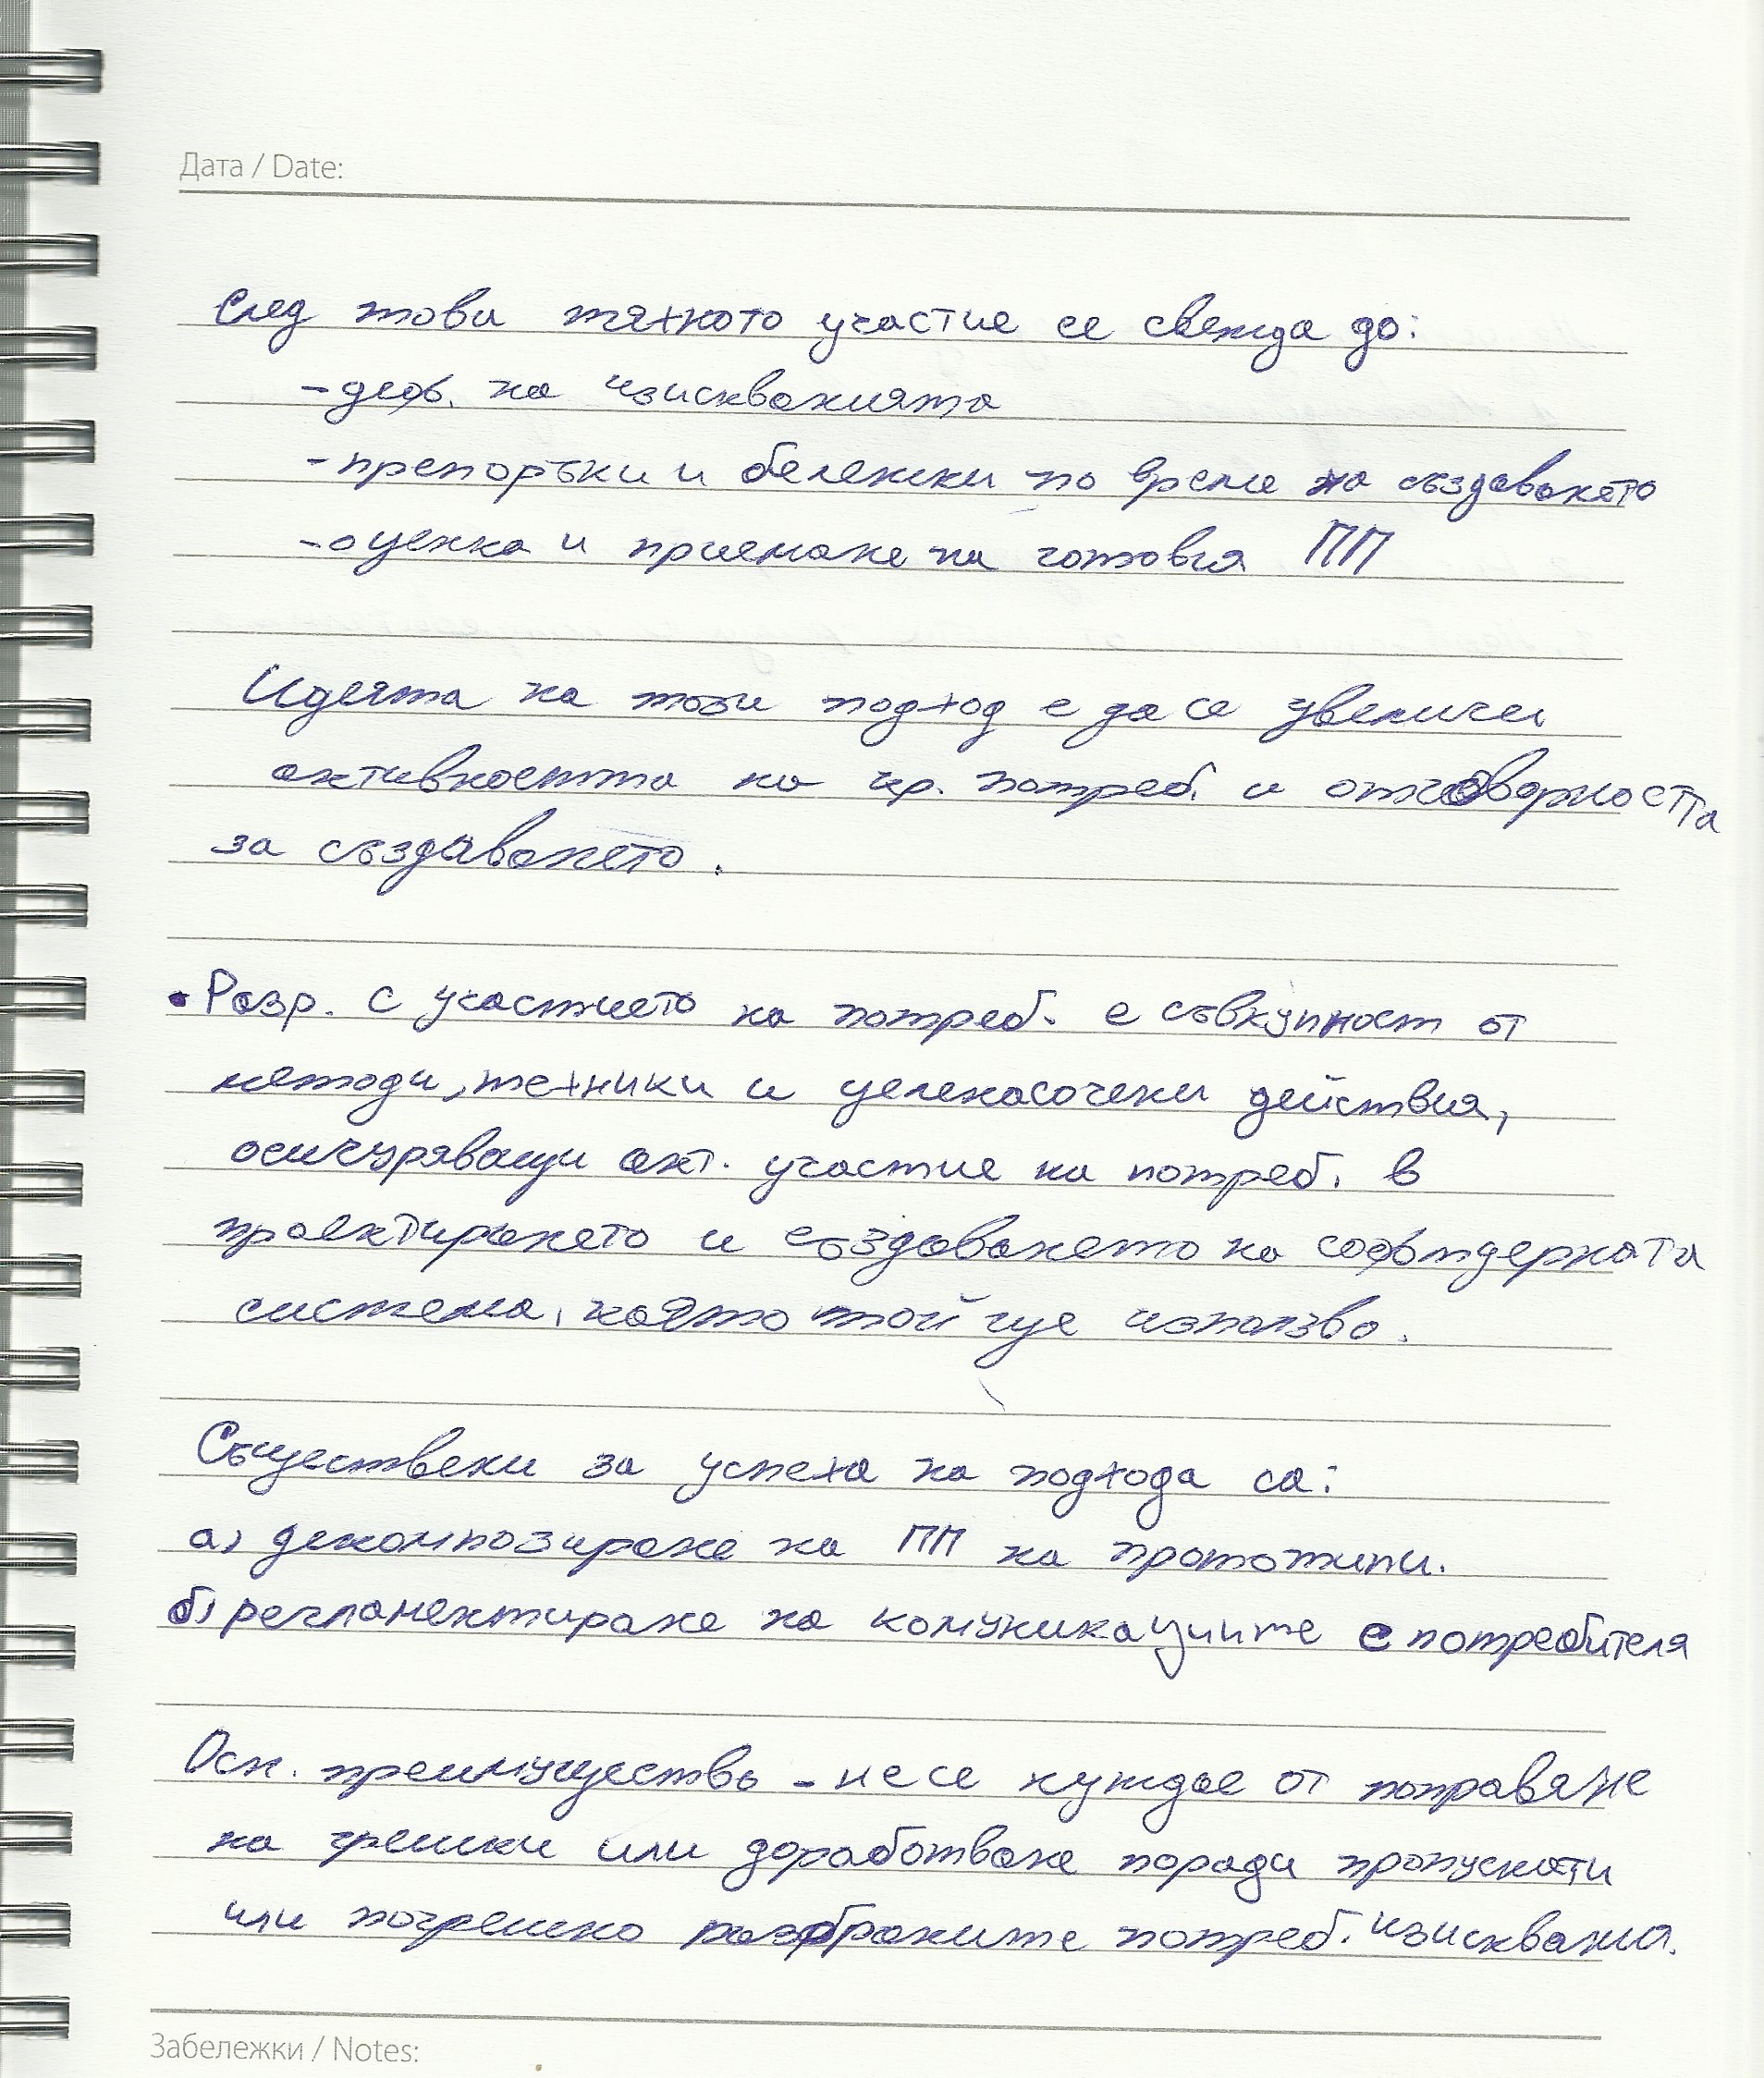 Дата / Date:
След това тяхното участие се свежда до:
- деф. на изискванията
- препоръки и бележки по време на създаването
- оценка и приемане на готовия ПП
Идеята на този подход е да се увеличи
активността на кр. потреб. и отговорността
за създаването.
• Разр. с участието на потреб. е съвкупност от
методи, техники и целенасочени действия,
осигуряващи акт. участие на потреб. в
проектирането и създаването на софтуерната
система, която той ще използва.
Съществени за успеха на подхода са:
а) декомпозиране на ПП на прототипи.
б) регламентиране на комуникациите с потребителя
Осн. преимущество - не се нуждае от поправяне
на грешки или доработване поради пропуснати
или погрешно разбраните потреб. изисквания.
Забележки / Notes: